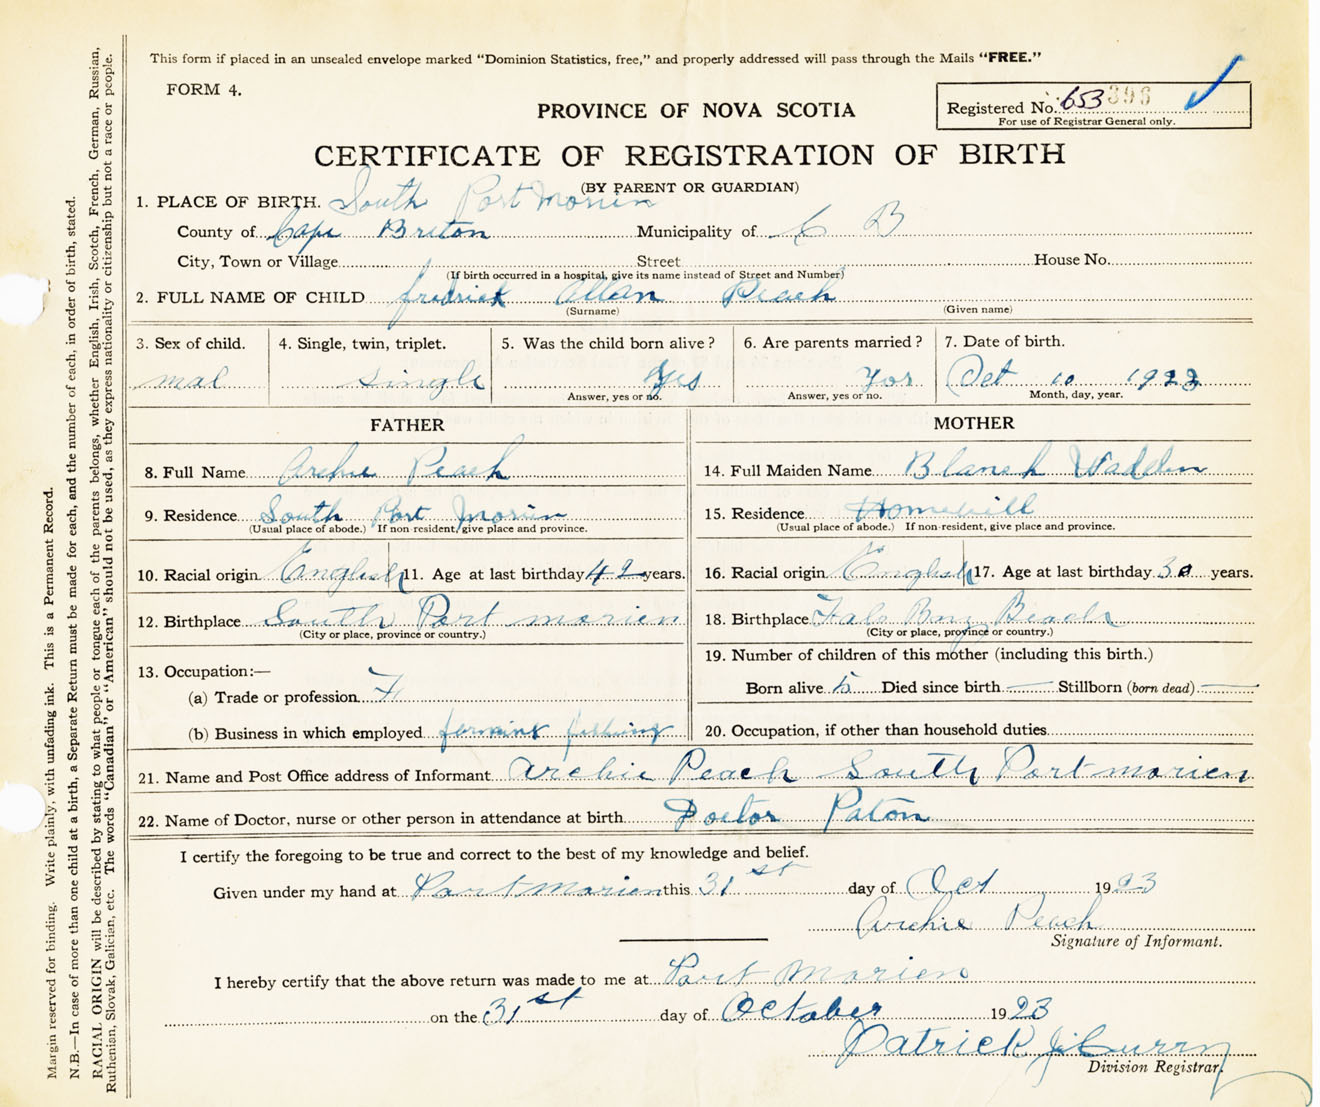 This form if placed in an unsealed envelope marked "Dominion Statistics, free," and properly addressed will pass through the Mails "FREE."
FORM 4.
Registered No. 653 396
For use of Registrar General only.
PROVINCE OF NOVA SCOTIA
CERTIFICATE OF REGISTRATION OF BIRTH
(BY PARENT OR GUARDIAN)
1. PLACE OF BIRTH. South Port Morien
County of Cape Breton Municipality of C B
City, Town or Village Street House No.
(If birth occurred in a hospital, give its name instead of Street and Number)
2. FULL NAME OF CHILD fredrick allan Peach
(Surname) (Given name)
3. Sex of child. 4. Single, twin, triplet. 5. Was the child born alive? 6. Are parents married? 7. Date of birth.
mal single Yes Yes Oct 10 1923
Answer, yes or no. Answer, yes or no. Month, day, year.
FATHER MOTHER
8. Full Name Archie Peach 14. Full Maiden Name Blanch Wadden
9. Residence South Port Morien 15. Residence Homevill
(Usual place of abode.) If non-resident, give place and province. (Usual place of abode.) If non-resident, give place and province.
10. Racial origin English 11. Age at last birthday 42 years. 16. Racial origin English 17. Age at last birthday 30 years.
12. Birthplace South Port morien 18. Birthplace Fals Bay Beach
(City or place, province or country.) (City or place, province or country.)
13. Occupation:— 19. Number of children of this mother (including this birth.)
(a) Trade or profession F Born alive 5 Died since birth — Stillborn (born dead) —
(b) Business in which employed farming fishing 20. Occupation, if other than household duties
21. Name and Post Office address of Informant Archie Peach South Port morien
22. Name of Doctor, nurse or other person in attendance at birth Doctor Paton
I certify the foregoing to be true and correct to the best of my knowledge and belief.
Given under my hand at Port morien this 31st day of Oct 1923
Archie Peach
Signature of Informant.
I hereby certify that the above return was made to me at Port Morien
on the 31st day of October 1923
Patrick J. Curry
Division Registrar.
Margin reserved for binding. Write plainly, with unfading ink. This is a Permanent Record.
N.B.—In case of more than one child at a birth, a Separate Return must be made for each, and the number of each, in order of birth, stated.
RACIAL ORIGIN will be described by stating to what people or tongue each of the parents belongs, whether English, Irish, Scotch, French, German, Russian,
Ruthenian, Slovak, Galician, etc. The words "Canadian" or "American" should not be used, as they express nationality or citizenship but not a race or people.